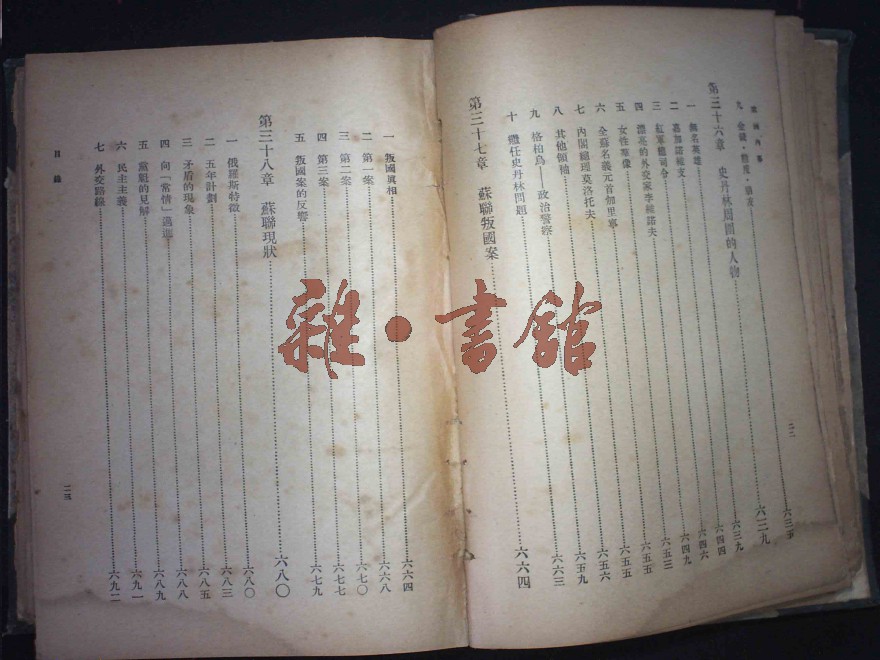 歐洲內幕
二二
九 金錢・態度・朋友……六三五
第三十六章 史丹林周圍的人物……六三九
一 無名英雄……六三九
二 嘉加諾維支……六四四
三 紅軍總司令……六四六
四 漂亮的外交家李維諾夫……六四九
五 女性羣像……六五三
六 全蘇名義元首伽里寧……六五五
七 內閣總理莫洛托夫……六五五
八 其他領袖……六五六
九 格柏烏——政治警察……六五九
十 繼任史丹林問題……六六三
第三十七章 蘇聯叛國案……六六四
一 叛國眞相……六六四
二 第一案……六六八
三 第二案……六七〇
四 第三案……六七七
五 叛國案的反響……六七九
第三十八章 蘇聯現狀……六八〇
一 俄羅斯特徵……六八〇
二 五年計劃……六八三
三 矛盾的現象……六八五
四 向「常情」邁進……六八八
五 黨魁的見解……六八九
六 民主主義……六九一
七 外交路線……六九二
目錄
二三
雜・書館